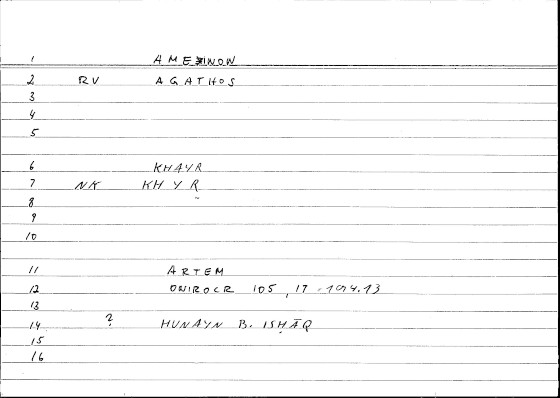 1 AMEINON
2 RV AGATHOS
3
4
5
6 KHAYR
7 NK KH Y R
8
9
10
11 ARTEM
12 ONIROCR 105, 17 -
13
14 ? HUNAYN B. ISḤĀQ
15
16